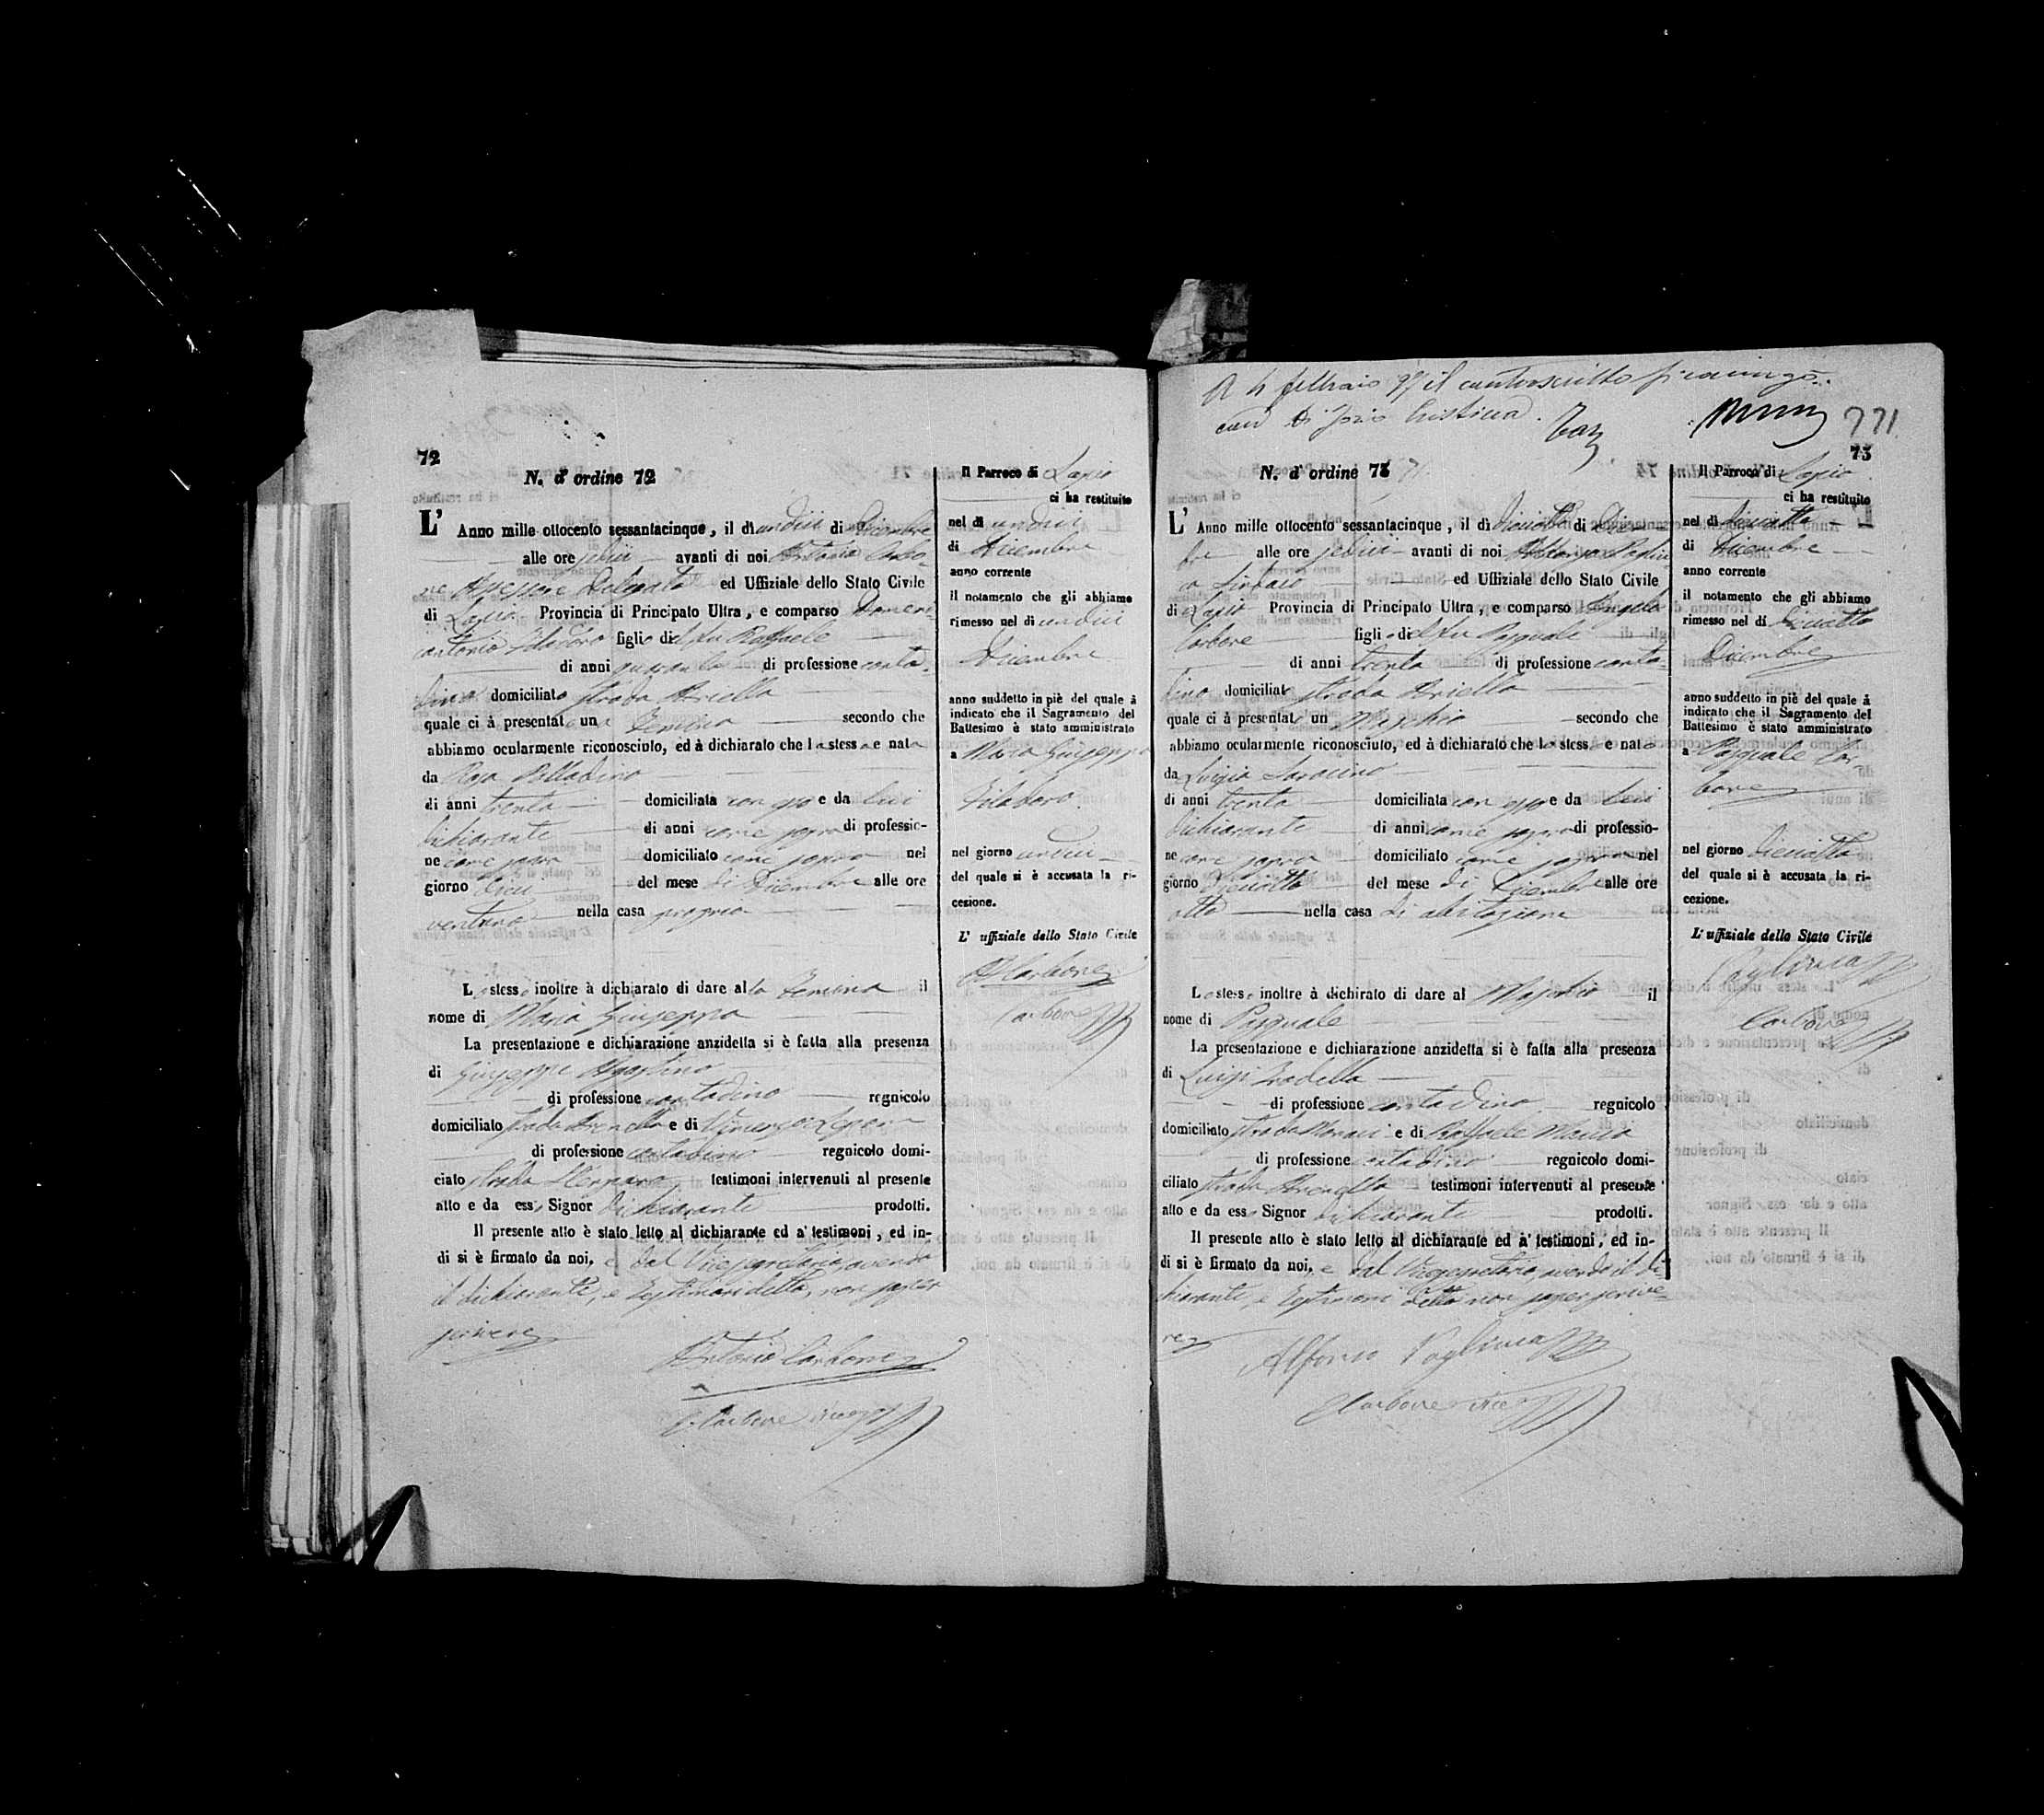 72
N. d' ordine 72
L' Anno mille ottocento sessantacinque, il dì undici di Dicembre
alle ore avanti di noi Antonio Carbo-
ne Assessore Delegato ed Uffiziale dello Stato Civile
di Lapio Provincia di Principato Ultra, e comparso Domen
antonio figlio del fu Raffaele
di anni quaranta di professione conta-
dino domiciliato strada Ariella
quale ci à presentat una Femina secondo che
abbiamo ocularmente riconosciuto, ed à dichiarato che la stessa e nata
da Rosa Palladino
di anni trenta domiciliata con esso e da lui
dichiarante di anni come sopra di professio-
ne come sopra domiciliato come sopra nel
giorno dieci del mese di Dicembre alle ore
ventuno nella casa propria
Lo stesso inoltre à dichiarato di dare alla Femina il
nome di Maria Giuseppa
La presentazione e dichiarazione anzidetta si è fatta alla presenza
di Giuseppe Agostino
di professione contadino regnicolo
domiciliato strada e di
di professione contadino regnicolo domi-
ciato strada testimoni intervenuti al presente
atto e da esso Signor dichiarante prodotti.
Il presente atto è stato letto al dichiarante ed a' testimoni, ed in-
di si è firmato da noi, e dal Vicesegretario, avendo
il dichiarante, e testimoni detto, non saper
scrivere
Antonio Carbone
Carbone
Il Parroco di Lapio
ci ha restituito
nel dì undici
di Dicembre
anno corrente
il notamento che gli abbiamo
rimesso nel dì undici
Dicembre
anno suddetto in piè del quale à
indicato che il Sagramento del
Battesimo è stato amministrato
a Maria Giuseppa
nel giorno undici
del quale si è accusata la ri-
cezione.
L' uffiziale dello Stato Civile
A Carbone
Carbone
A 4 febbraio 97 il controscritto si coniugò
con Di Jorio Cristina.
771
73
N. d' ordine 73
L' Anno mille ottocento sessantacinque, il dì diciotto di Dicem-
bre alle ore avanti di noi Alfonso Pagliu
ca Sindaco ed Uffiziale dello Stato Civile
di Lapio Provincia di Principato Ultra, e comparso Angelo
Carbone figlio del fu Pasquale
di anni trenta di professione conta-
dino domiciliato strada Ariella
quale ci à presentat un Maschio secondo che
abbiamo ocularmente riconosciuto, ed à dichiarato che lo stesso e nato
da Luigia Saracino
di anni trenta domiciliata con esso e da lui
dichiarante di anni come sopra di professio-
ne come sopra domiciliato come sopra nel
giorno diciotto del mese di Dicembre alle ore
otto nella casa di abitazione
Lo stesso inoltre à dichirato di dare al Maschio il
nome di Pasquale
La presentazione e dichiarazione anzidetta si è fatta alla presenza
di Luigi
di professione contadino regnicolo
domiciliato strada e di Raffaele
di professione contadino regnicolo domi-
ciliato strada testimoni intervenuti al presente
atto e da esso Signor dichiarante prodotti.
Il presente atto è stato letto al dichiarante ed a' testimoni, ed in-
di si è firmato da noi, e dal Vicesegretario, avendo il di-
chiarante, e testimoni detto non saper scrive-
re
Alfonso Pagliuca
Carbone
Il Parroco di Lapio
ci ha restituito
nel dì diciotto
di Dicembre
anno corrente
il notamento che gli abbiamo
rimesso nel dì diciotto
Dicembre
anno suddetto in piè del quale à
indicato che il Sagramento del
Battesimo è stato amministrato
a Pasquale Car-
bone
nel giorno diciotto
del quale si è accusata la ri-
cezione.
L' uffiziale dello Stato Civile
Pagliuca
Carbone